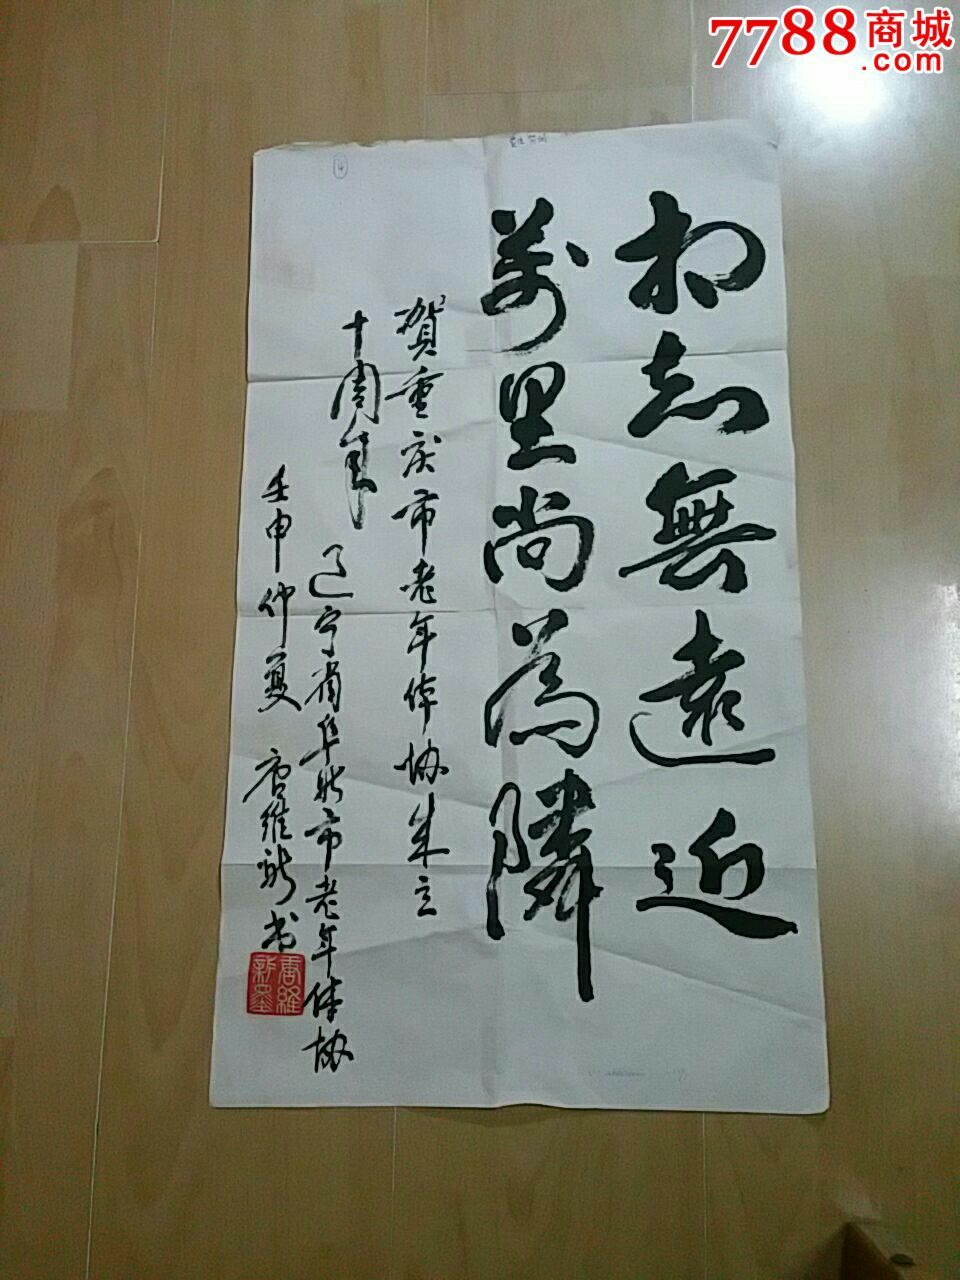 7788商城
.com
相知無遠近
萬里尚為隣
贺重庆市老年体协成立
十周年
辽宁省阜新市老年体协
壬申仲夏 唐维新书
唐維
新墨
14